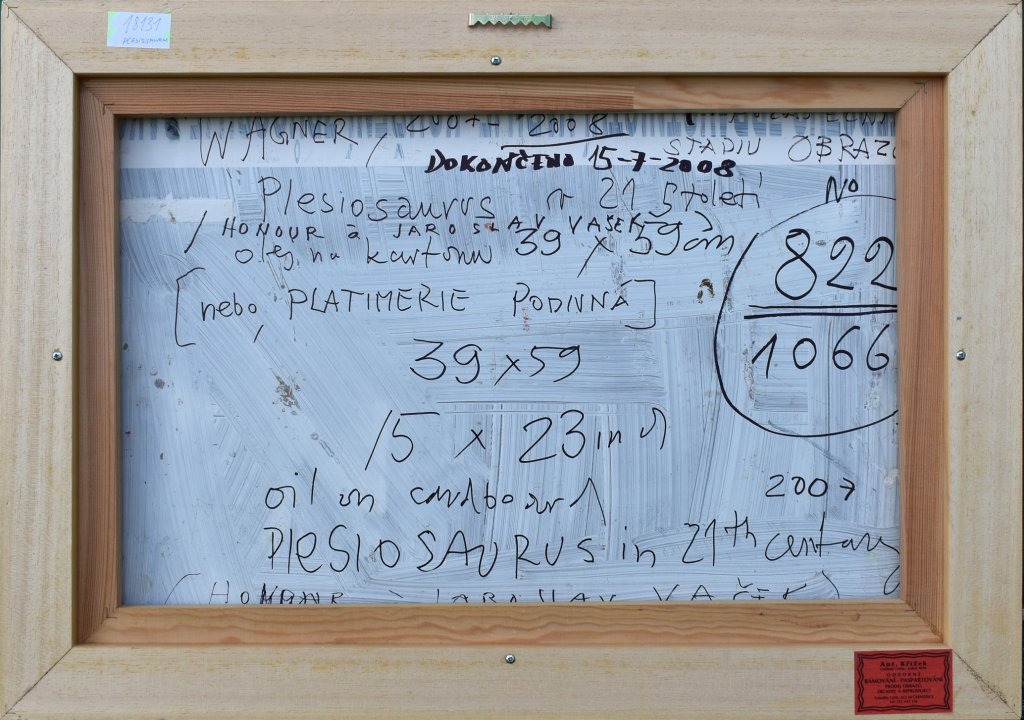 18131
PLESIOSAURUS
WAGNER, 2007-2008
STADIU OBRAZU
DOKONČENO 15-7-2008
Plesiosaurus v 21 století
No
/ HONOUR à JAROSLAV VAŠEK
olej na kartonu 39 x 59 cm
822
[nebo, PLATIMERIE PODIVNÁ]
1066
39x59
15 x 23 in
oil on cardboard
2007
PlESIOSAURUS in 21th century
(HONOUR à JAROSLAV VAŠEK)
Ant. Křížek
ODBORNÉ
RÁMOVÁNÍ - PASPARTOVÁNÍ
PRODEJ OBRAZŮ,